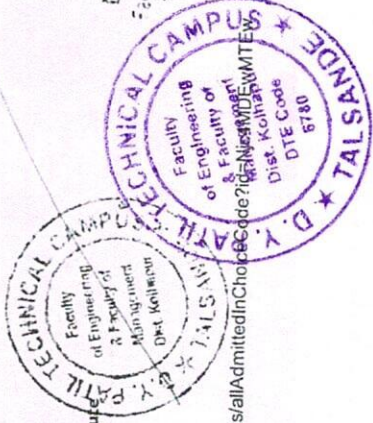 D.Y. PATIL TECHNICAL CAMPUS
★ TALSANDE ★
Faculty
of Engineering
& Faculty of
Management
Dist. Kolhapur
DTE Code
6780
D.Y. PATIL TECHNICAL CAMPUS
Faculty
of Engineering
& Faculty of
Management
Dist. Kolhapur
s/allAdmittedInChoiceCode?id=